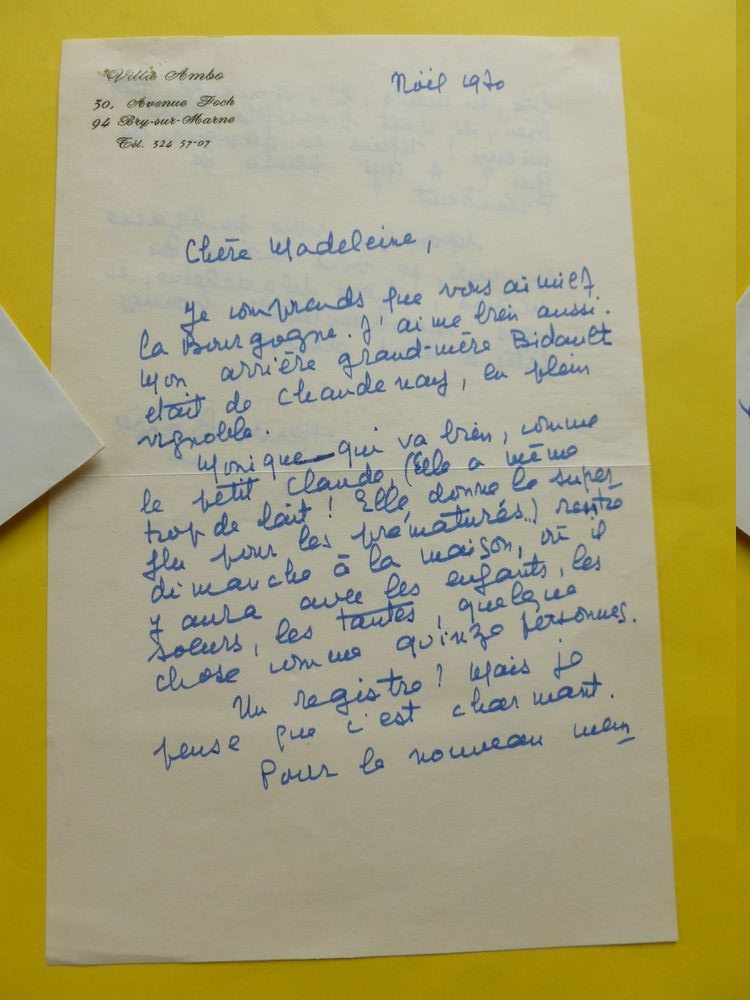 Villa Ambo
30, Avenue Foch
94 Bry-sur-Marne
Tél. 324 57-07
Noël 1970
Chère Madeleine,
Je comprends que vous aimiez
la Bourgogne. J'aime bien aussi.
Mon arrière grand-mère Bidault
était de Chaudenay, en plein
vignoble.
Monique qui va bien, comme
le petit Claude, (Elle a même
trop de lait ! Elle donne le super-
flu pour les prématurés...) rentre
dimanche à la maison, où il
y aura avec les enfants, les
soeurs, les tantes, quelque
chose comme quinze personnes.
Un registre ? Mais je
pense que c'est charmant.
Pour le nouveau